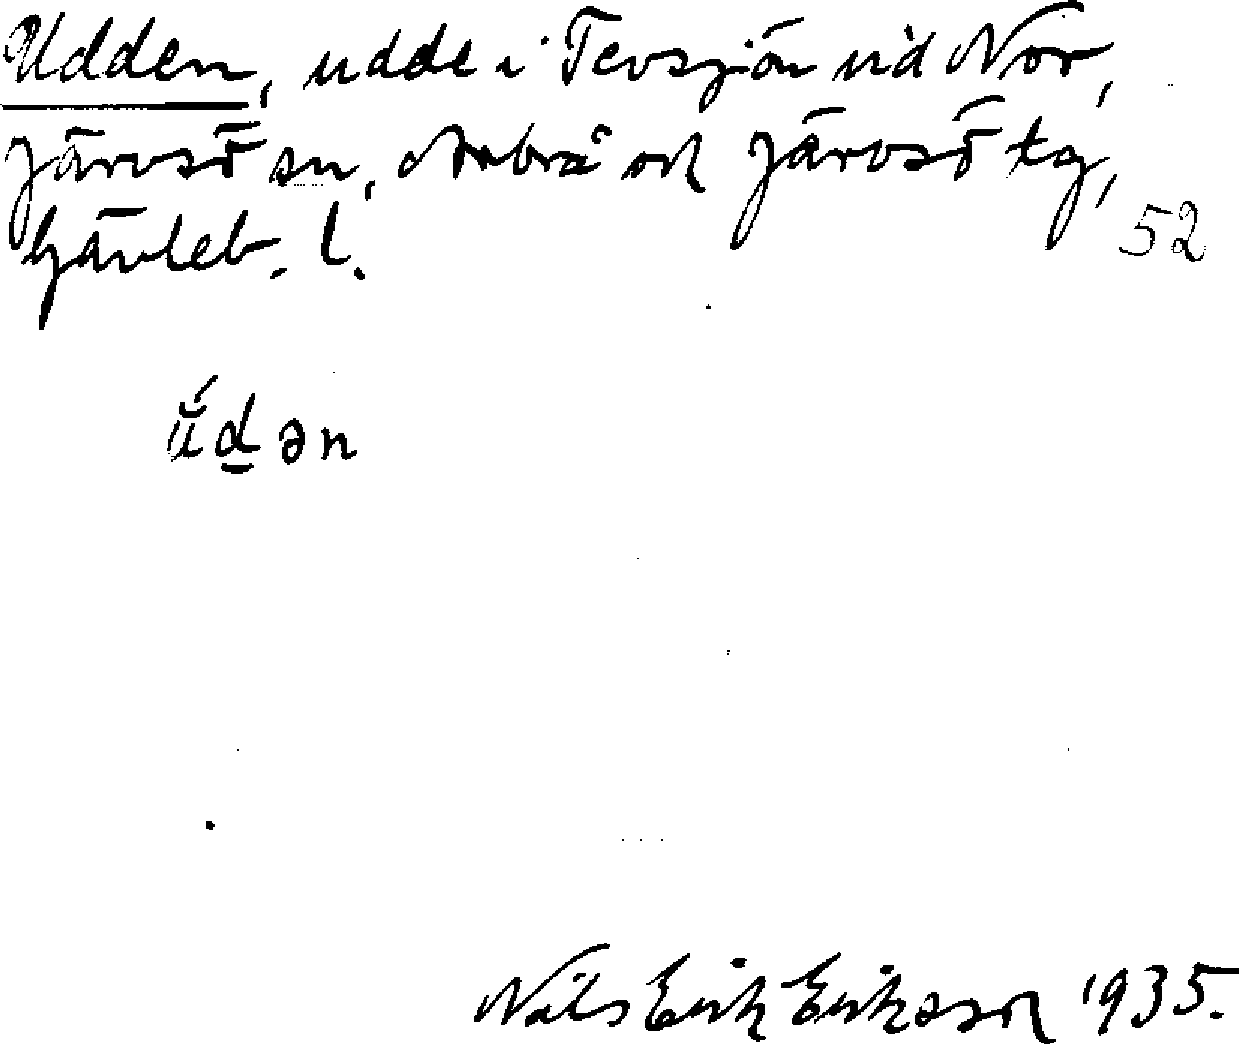 Udden, udde i Tevsjön vid Nor,
Järvsö sn, Arbrå och Järvsö tg,
Gävleb. l. 52
ŭ́d̲ən
Nils Erik Eriksson 1935.